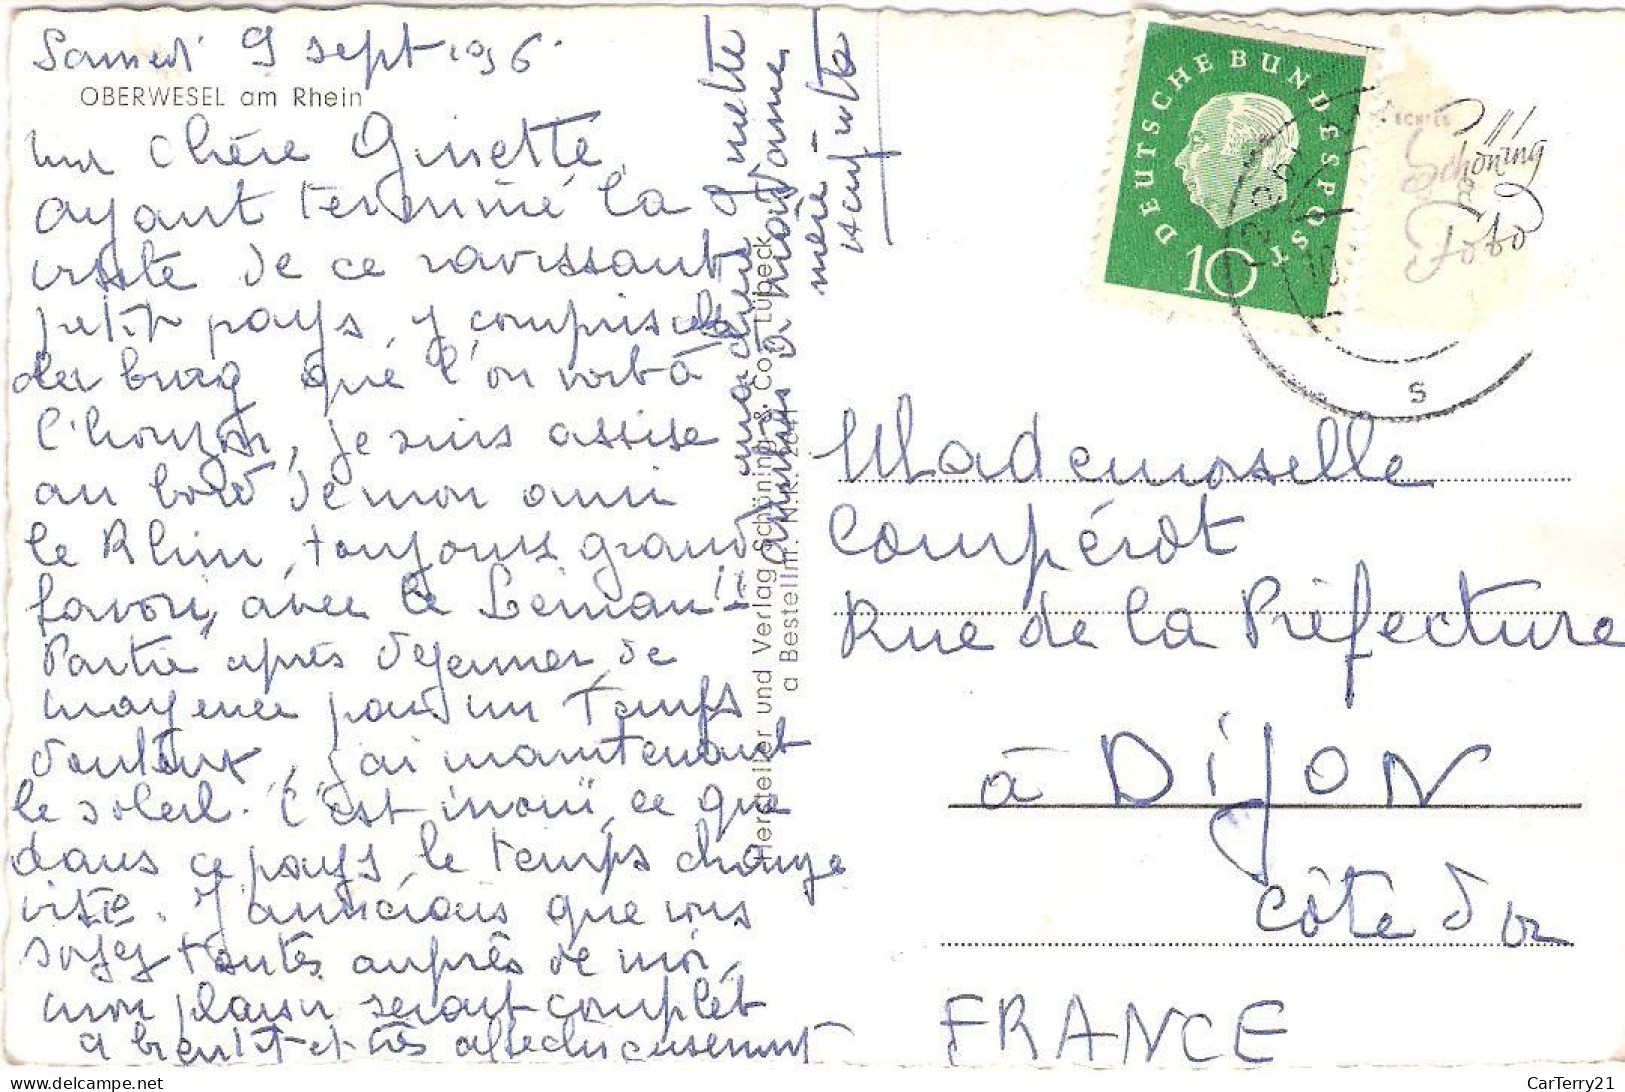 Samedi 9 sept 196
OBERWESEL am Rhein
ma chère Ginette,
ayant terminé la
visite de ce ravissant
petit pays, y compris le
der burg que l'on voit à
l'horizon, je suis assise
au bord de mon ami
le Rhin, toujours grand
favori, avec le Léman!!
Partie après déjeuner de
Mayence par un temps
douteux, j'ai maintenant
le soleil. C'est inouï, ce que
dans ce pays, le temps change
vite. J'apprécierais que vous
soyez toutes auprès de moi,
mon plaisir serait complet
à bientôt et très affectueusement
ma chère Ginette
à Madame
mère
Hersteller und Verlag Schöning & Co., Lübeck
a Bestellnr.
DEUTSCHE BUNDESPOST
10
ECHTES
Schöning
Foto
S
Mademoiselle
Compérot
Rue de la Préfecture
à DIJON
Côte d'or
FRANCE
CarTerry21